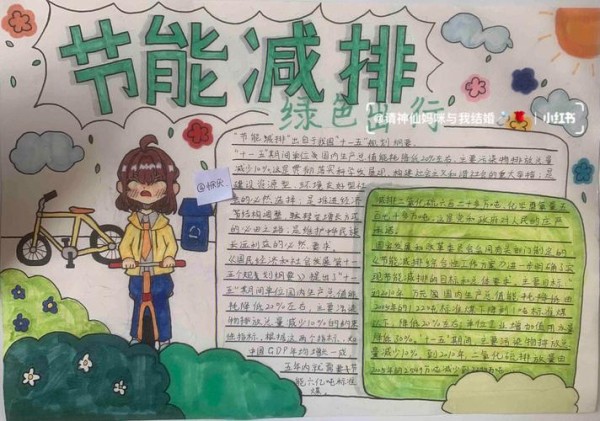 节能减排
绿色出行
@请神仙妈咪与我结婚
小红书
"节能减排"出自于我国"十一五"规划纲要。
"十一五"期间单位国内生产总值能耗降低20%左右、主要污染物排放总量
减少10%。这是贯彻落实科学发展观、构建社会主义和谐社会的重大举措;是
建设资源节约型、环境友好型社
会的必然选择;是推进经济
结构调整,转变增长方式
的必由之路;是维护中华民族
长远利益的必然要求。
《国民经济和社会发展第十一
个五年规划纲要》提出了"十一
五"期间单位国内生产总值能
耗降低20%左右,主要污染
物排放总量减少10%的约束
性指标。
中国GDP年均增长一成
五年内就需要节
能六亿吨标准
煤。
减排二氧化硫六百二十多万吨、化学需氧量五
百
国家发展和改革委员会会同有关部门制定的
《节能减排综合性工作方案》进一步明确了实
现节能减排的目标和总体要求。主要目标
到2010年,万元国内生产总值能耗由
2005年的1.22吨标准煤下降到1吨标准煤
以下,降低20%左右;单位工业增加值用水量
降低30%。"十一五"期间,主要污染物排放总
量减少10%,到2010年,二氧化硫排放量由
2005年的2549万吨减少到2295万吨